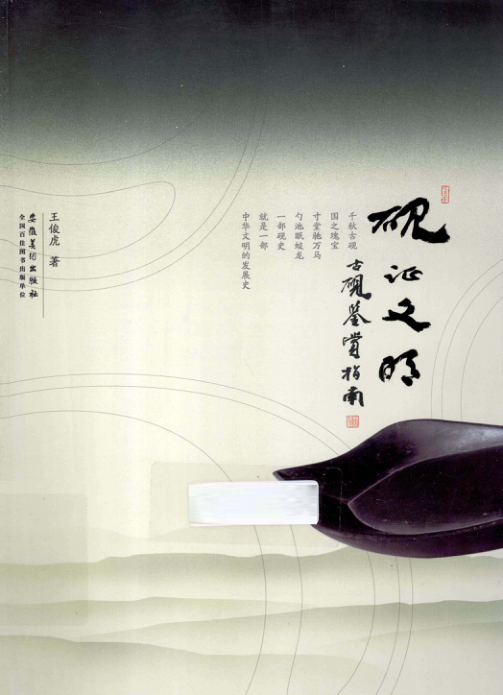 砚证文明
古砚鉴赏指南
千秋古砚
国之瑰宝
寸堂驰万马
勺池眠蛟龙
一部砚史
就是一部
中华文明的发展史
王俊虎 著
安徽美术出版社
全国百佳图书出版单位